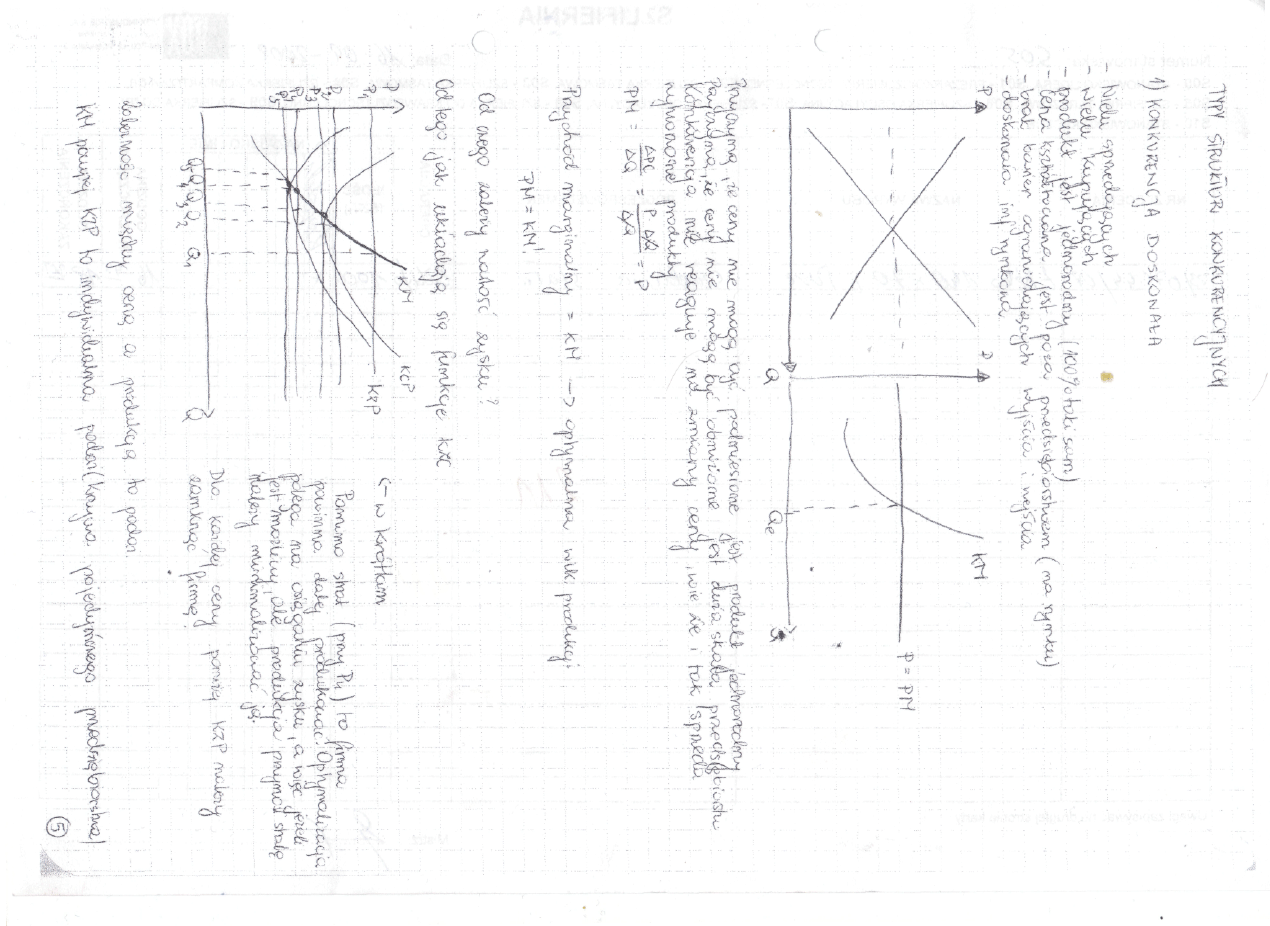 TYPY STRUKTUR KONKURENCYJNYCH
1) KONKURENCJA DOSKONAŁA
- Wielu sprzedających
- Wielu kupujących
- produkt jest jednorodny (100% taki sam)
- cena kształtowana jest poza przedsiębiorstwem (na rynku)
- brak barier ograniczających wyjścia i wejścia
- doskonała inf. rynkowa
P
Q
P
KM
P = PM
Qe
Q
Przyczyną, że ceny nie mogą być podniesione jest produkt jednorodny
Przyczyną, że ceny nie mogą być obniżone jest duża skala przedsiębiorstw
Konkurencja nie reaguje na zmiany ceny, wie że i tak sprzeda
wytworzone produkty
PM = ΔPC / ΔQ = P ΔQ / ΔQ = P
Przychód marginalny = KM -> optymalna wielk. produkcji
PM = KM!
Od czego zależy wartość zysku?
Od tego jak układają się funkcje KPC
P
P1
P2
P3
P4
P5
KM
KCP
KZP
Q5 Q4 Q3 Q2 Q1
Q
<- w krótkim
Pomimo strat (przy P4) to firma
powinna dalej produkować! Optymalizacja
polega na osiąganiu zysku, a więc jeżeli
jest możliwy, ale produkcja przynosi stratę
należy minimalizować ją.
Dla każdej ceny poniżej KZP należy
zamknąć firmę!
Zależność między ceną a produkcją to podaż.
KM powyżej KZP to indywidualna podaż (krzywa pojedynczego przedsiębiorstwa)
5